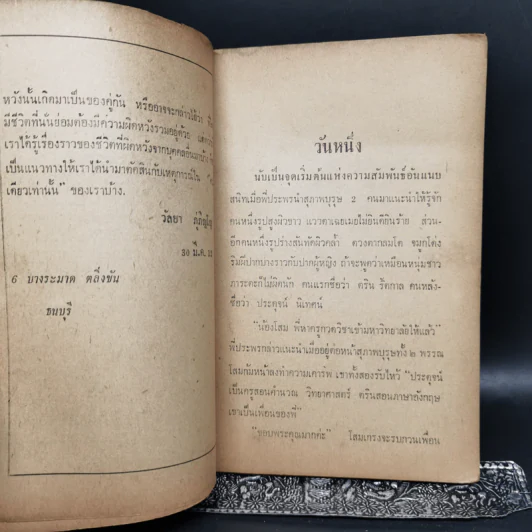 หวังนั้นเกิดมาเป็นของคู่กัน หรืออาจจะกล่าวได้ว่า
มีชีวิตที่นั่นย่อมต้องมีความผิดหวังรวมอยู่ด้วย
เราได้รู้เรื่องราวของชีวิตที่ผิดหวังจากบุคคลอื่นมาบ้าง
เป็นแนวทางให้เราได้นำมาตัดสินกับเหตุการณ์ใน
เดียวเท่านั้น" ของเราบ้าง.
วัลยา
๓๐ มี.ค.
6 บางระมาด ตลิ่งชัน
ธนบุรี
วันหนึ่ง
นับเป็นจุดเริ่มต้นแห่งความสัมพันธ์อันแนบ
สนิทเมื่อพี่ประพรนำสุภาพบุรุษ 2 คนมาแนะนำให้รู้จัก
คนหนึ่งรูปสูงผิวขาว แววตาเฉยเมยไม่ยินดียินร้าย ส่วน
อีกคนหนึ่งรูปร่างสันทัดผิวคล้ำ ดวงตากลมโต จมูกโด่ง
ริมฝีปากบางราวกับปากผู้หญิง ถ้าจะพูดว่าเหมือนหนุ่มชาว
ภารตะก็ไม่ผิดนัก คนแรกชื่อว่า ตริน รัตกาล คนหลัง-
ชื่อว่า ประดุจน์ นิเทศน์
"น้องโสม พี่หาครูกวดวิชาเข้ามหาวิทยาลัยให้แล้ว"
พี่ประพรกล่าวแนะนำเมื่ออยู่ต่อหน้าสุภาพบุรุษทั้ง ๒ พรรณ
โสมก้มหน้าลงทำความเคารพ เขาทั้งสองรับไหว้ "ประดุจน์
เป็นครูสอนคำนวณ วิทยาศาสตร์ ตรินสอนภาษาอังกฤษ
เขาเป็นเพื่อนของพี่"
"ขอบพระคุณมากค่ะ" โสมเกรงจะรบกวนเพื่อน